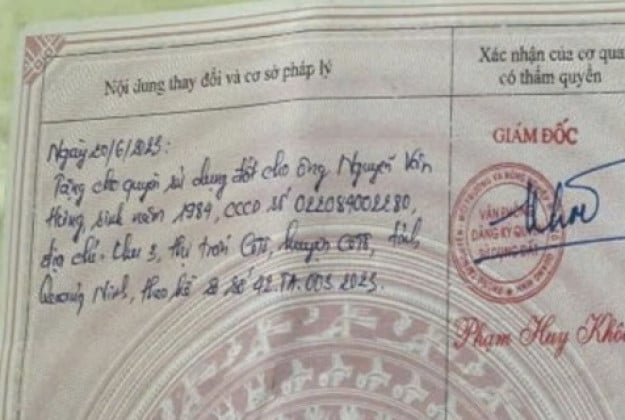 Nội dung thay đổi và cơ sở pháp lý
Xác nhận của cơ qua
có thẩm quyền
Ngày 20/6/2023:
Tặng cho quyền sử dụng đất cho ông Nguyễn Văn
Hùng sinh năm 1984, CCCD số 022084002280,
địa chỉ: khu 3, thị trấn Cô Tô, huyện Cô Tô, tỉnh
Quảng Ninh, theo hồ sơ số 42.TA.003.2023.
GIÁM ĐỐC
VĂN PHÒNG
ĐĂNG KÝ QUYỀN
SỬ DỤNG ĐẤT
Phạm Huy Khô